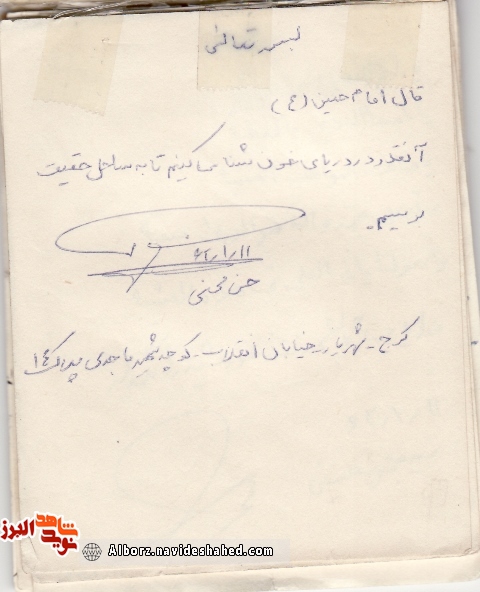 بسمه تعالی
قال امام حسین (ع)
آنقدر در دریای خون شنا میکنیم تا به ساحل حقیقت
برسیم.
۶۲/۱/۱۱
حسن محبی
کرج - شهریار خیابان انقلاب - کوچه شهید ماجدی پلاک ۱۴
نوید شاهد البرز
Alborz.navideshahed.com